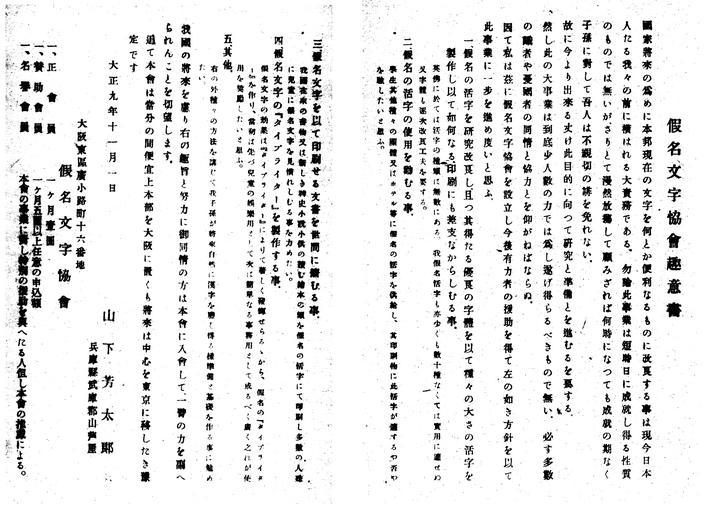 假名文字協會趣意書
國家將來の爲めに本邦現在の文字を何とか便利なるものに改良する事は現今日本
人たる我々の前に横はれる大責務である。勿論此事業は短時日に成就し得る性質
のものでは無いがさりとて漫然放擲して顧みざれば何時になつても成就の期なく
子孫に對して吾人は不親切の誹を免れない。
故に今より出來る丈け此目的に向つて研究と準備とを進むるを要する。
然し此の大事業は到底少人數の力では爲し遂げ得らるべきもので無い、必ず多數
の識者や憂國者の同情と協力とを仰がねばならぬ。
因て私は茲に假名文字協會を設立し今後有力者の援助を得て左の如き方針を以て
此事業に一步を進め度いと思ふ。
一假名の活字を研究改良し且つ其得たる優良の字體を以て種々の大さの活字を
製作し以て如何なる印刷にも差支なからしむる事、
英佛に於ては活字の種類は無數にある、我假名活字も亦少くも數十種なくては實用に適せぬ
又字體も逐次改良工夫を要する。
二假名の活字の使用を勸むる事、
學生其他種々の團體又はホテル等に假名の活字を供給し、其印刷物に此活字が適するや否や
を驗したいと思ふ。
三假名文字を以て印刷せる文書を世間に薦むる事、
我國在來の書物又は新しき稗史小說小供の讀む繪本の類を假名の活字にて印刷し多數の人殊
に兒童に假名文字を見慣れしむる事を力めたい。
四假名文字の『タイプライター』を製作する事、
假名文字の効果は『タイプライター』によりて著しく發揮せらるゝから、假名の『タイプライタ
ー』を作り、當初は先づ兒童の娛樂用として次は簡單なる事務用として成るべく廣く之れが使
用を奬勵したいと思ふ。
五其他、
右の外種々の方法を講じて我子孫が將來自然に漢字を廢し得る樣準備と基礎を作る事に勉め
たい。
我國の將來を慮り右の趣旨と努力に御同情の方は本會に入會して一臂の力を副へ
られんことを切望します。
追て本會は當分の間便宜上本部を大阪に置くも將來は中心を東京に移したき豫
定です
大正九年十一月一日
山下芳太郎
兵庫縣武庫郡山芦屋
大阪東區廣小路町十六番地
假名文字協會
一、正會員 一ケ月壹圓
一、贊助會員 一ケ月五圓以上任意の申込額
一、名譽會員 本會の事業に對し特別の援助を與へたる人但し本會の推薦による。